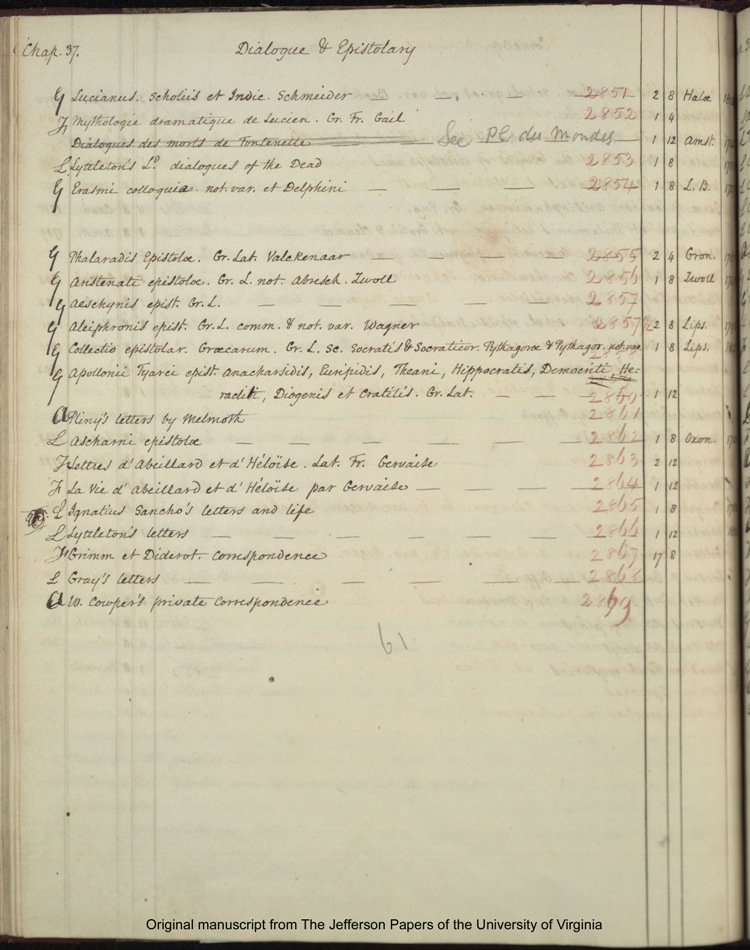 Chap. 37. Dialogue & Epistolary
G Lucianus. Scholiis et Indic. Schmeider — — — 2851 2 8 Halae
F Mythologie dramatique de Lucien. Gr. Fr. Gail 2852 1 4
Dialogues des morts de Fontenelle See Pl. des Mondes 1 12 Amst.
L Lyttleton's Ld. dialogues of the Dead 2853 1 8
G Erasmi colloquia. not. var. et Delphini — — — — 2854 1 8 L. B.
G Phalaradis Epistolae. Gr. Lat. Valckenaar — — — — 2855 2 4 Gron.
G Aristenati epistolae. Gr. L. not. Abresch. Zwoll 2856 1 8 Zwoll
G Aeschynis epist. Gr. L. — — — — — 2857
G Alciphronis epist. Gr. L. comm. & not. var. Wagner 2857½ 2 8 Lips.
G Collectio epistolar. Graecarum. Gr. L. sc. Socratis & Socraticor. Pythagorae & Pythagor. not. var. 1 8 Lips.
G Apollonii Tyanei epist. Anacharsidis, Euripidis, Theani, Hippocratis, Democriti, He-
racliti, Diogenis et Cratilis. Gr. Lat. — — 2860 1 12
a Pliny's letters by Melmoth 2861
L Aschami epistolae — — — — — — 2862 1 8 Oxon.
F Lettres d'Abeillard et d'Héloïse. Lat. Fr. Gervaise 2863 2 12
F La Vie d'Abeillard et d'Héloïse par Gervaise — — — 2864 1 12
L Ignatius Sancho's letters and life 2865 1 8
L Lyttleton's letters — — — — — — 2866 1 12
F Grimm et Diderot. correspondence 2867 17 8
L Gray's letters — — — — — — 2868
a W. Cowper's private correspondence 2869
61
Original manuscript from The Jefferson Papers of the University of Virginia